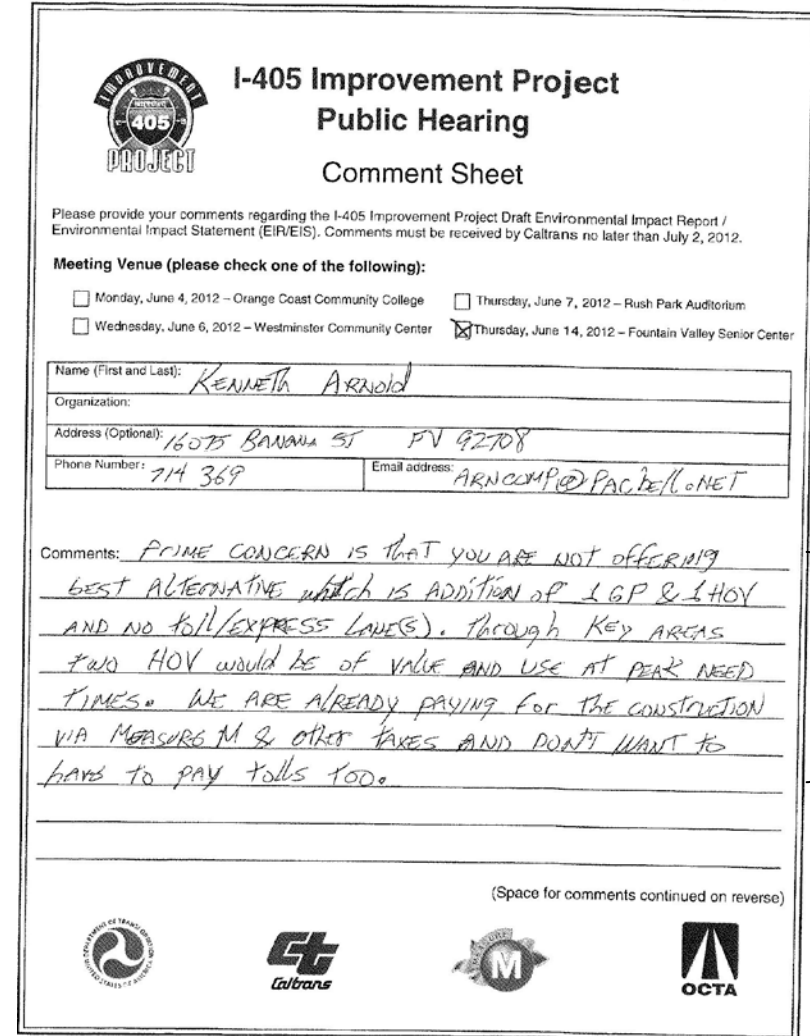 IMPROVEMENT
INTERSTATE
405
PROJECT
I-405 Improvement Project
Public Hearing
Comment Sheet
Please provide your comments regarding the I-405 Improvement Project Draft Environmental Impact Report /
Environmental Impact Statement (EIR/EIS). Comments must be received by Caltrans no later than July 2, 2012.
Meeting Venue (please check one of the following):
Monday, June 4, 2012 – Orange Coast Community College
Thursday, June 7, 2012 – Rush Park Auditorium
Wednesday, June 6, 2012 – Westminster Community Center
Thursday, June 14, 2012 – Fountain Valley Senior Center
Name (First and Last): KENNETH ARNOld
Organization:
Address (Optional): 16075 BANANA ST FV 92708
Phone Number: 714 369
Email address: ARNCOMP@PACbell.NET
Comments: PRIME CONCERN IS THAT YOU ARE NOT OFFERING
BEST ALTERNATIVE which IS ADDITION OF 1 GP & 1 HOV
AND NO toll/EXPRESS LANE(S). Through KEY AREAS
two HOV would BE OF VALUE AND USE AT PEAK NEED
TIMES. WE ARE AlREADY PAYING FOR THE CONSTRUCTION
VIA MEASURE M & OTHER TAXES AND DON'T WANT TO
HAVE TO PAY tolls TOO.
(Space for comments continued on reverse)
DEPARTMENT OF TRANSPORTATION
UNITED STATES OF AMERICA
Ct
Caltrans
MEASURE
M
OCTA